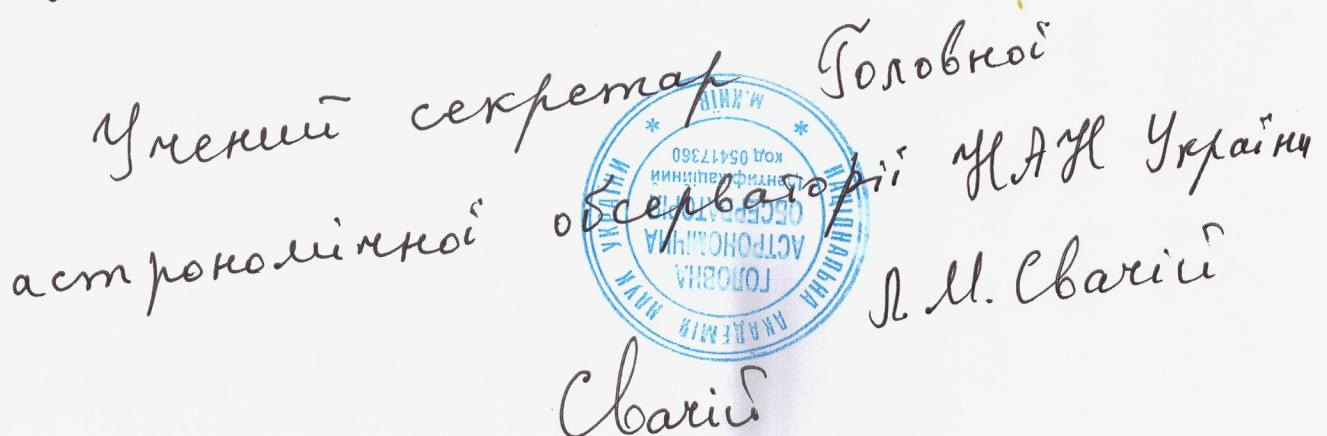 Учений секретар Головної
астрономічної обсерваторії НАН України
Л.М. Свачій
Свачій
НАЦІОНАЛЬНА АКАДЕМІЯ НАУК УКРАЇНИ
* М.КИЇВ *
ГОЛОВНА
АСТРОНОМІЧНА
ОБСЕРВАТОРІЯ
Ідентифікаційний
код 05417360